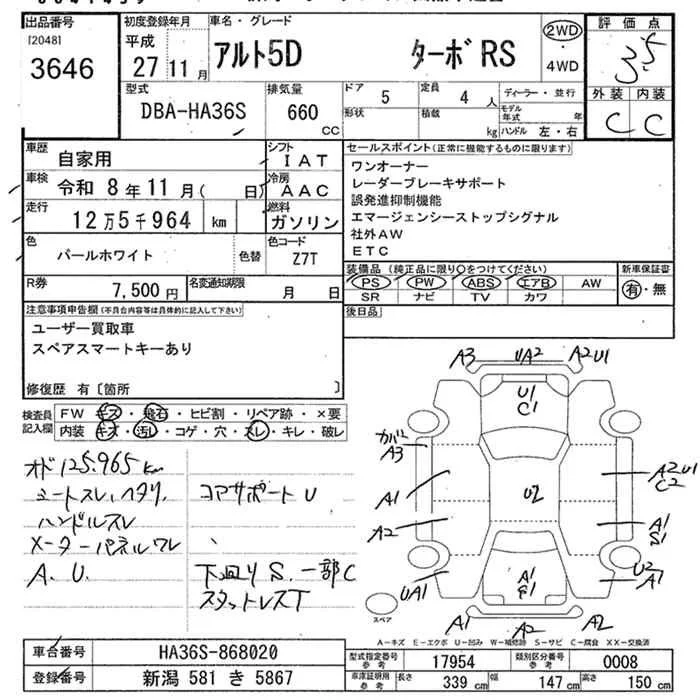 出品番号
[2048]
3646
初度登録年月
平成
27 11月
車名・グレード
アルト5D ターボRS
2WD
・
4WD
評価点
3.5
外装 内装
C C
型式
DBA-HA36S
排気量
660 CC
ドア 5
形状
定員 4 人
積載 kg
ディーラー・並行
モデル年式 年
ハンドル 左・右
車歴 自家用
車検 令和 8年11月( 日)
走行 12万5千964 km
色 パールホワイト 色替
シフト IAT
冷房 AAC
燃料 ガソリン
色コード Z7T
R券 7,500円 名変通知期限 月 日
セールスポイント(正常に機能するものに限ります)
ワンオーナー
レーダーブレーキサポート
誤発進抑制機能
エマージェンシーストップシグナル
社外AW
ETC
装備品(純正品に限り○をつけてください) 新車保証書
PS PW ABS エアB AW 有・無
SR ナビ TV カワ
後日品
注意事項申告欄(不具合内容等は具体的に記入して下さい)
ユーザー買取車
スペアスマートキーあり
修復歴 有〔箇所 〕
検査員記入欄
FW キズ・飛石・ヒビ割・リペア跡・×要
内装 キズ・汚レ・コゲ・穴・スレ・キレ・破レ
オド125.965km
シートスレ、ヘタリ、
ハンドルスレ
メーターパネルワレ
A.U.
コアサポートU
下廻りS.一部C
スタットレスT
A3 UA2 A2U1
U1
C1
カバー
A3
A1
A2
UA1
U2
A2U1
C2
A1
S1
U2
A1
A1
F1
A1 A2 A2
スペア
A-キズ E-エクボ U-凹み W-補修跡 S-サビ C-腐食 XX-交換済
車台番号 HA36S-868020
登録番号 新潟 581 き 5867
型式指定番号 参考 17954 類別区分番号 参考 0008
車庫証明用 参考 長さ 339 cm 幅 147 cm 高さ 150 cm